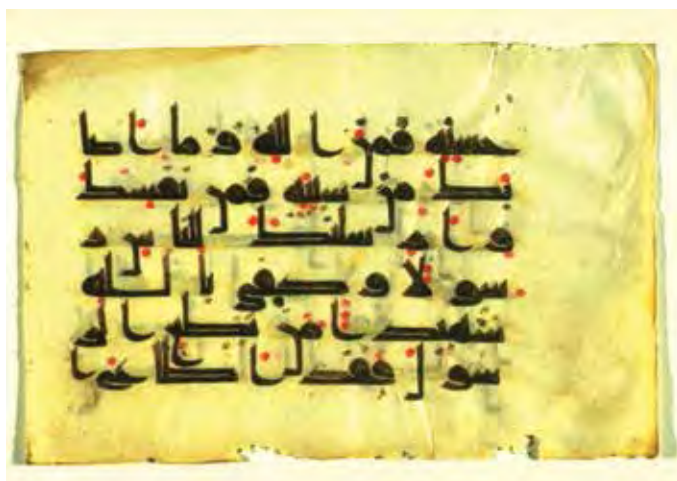 حسنه فمن الله و ما اصا
بك من سيئه فمن نفسك
و ار سلنك للنا س ر
سولا و كفى با لله
شهيدا من يطع الر
سول فقد اطاع ا